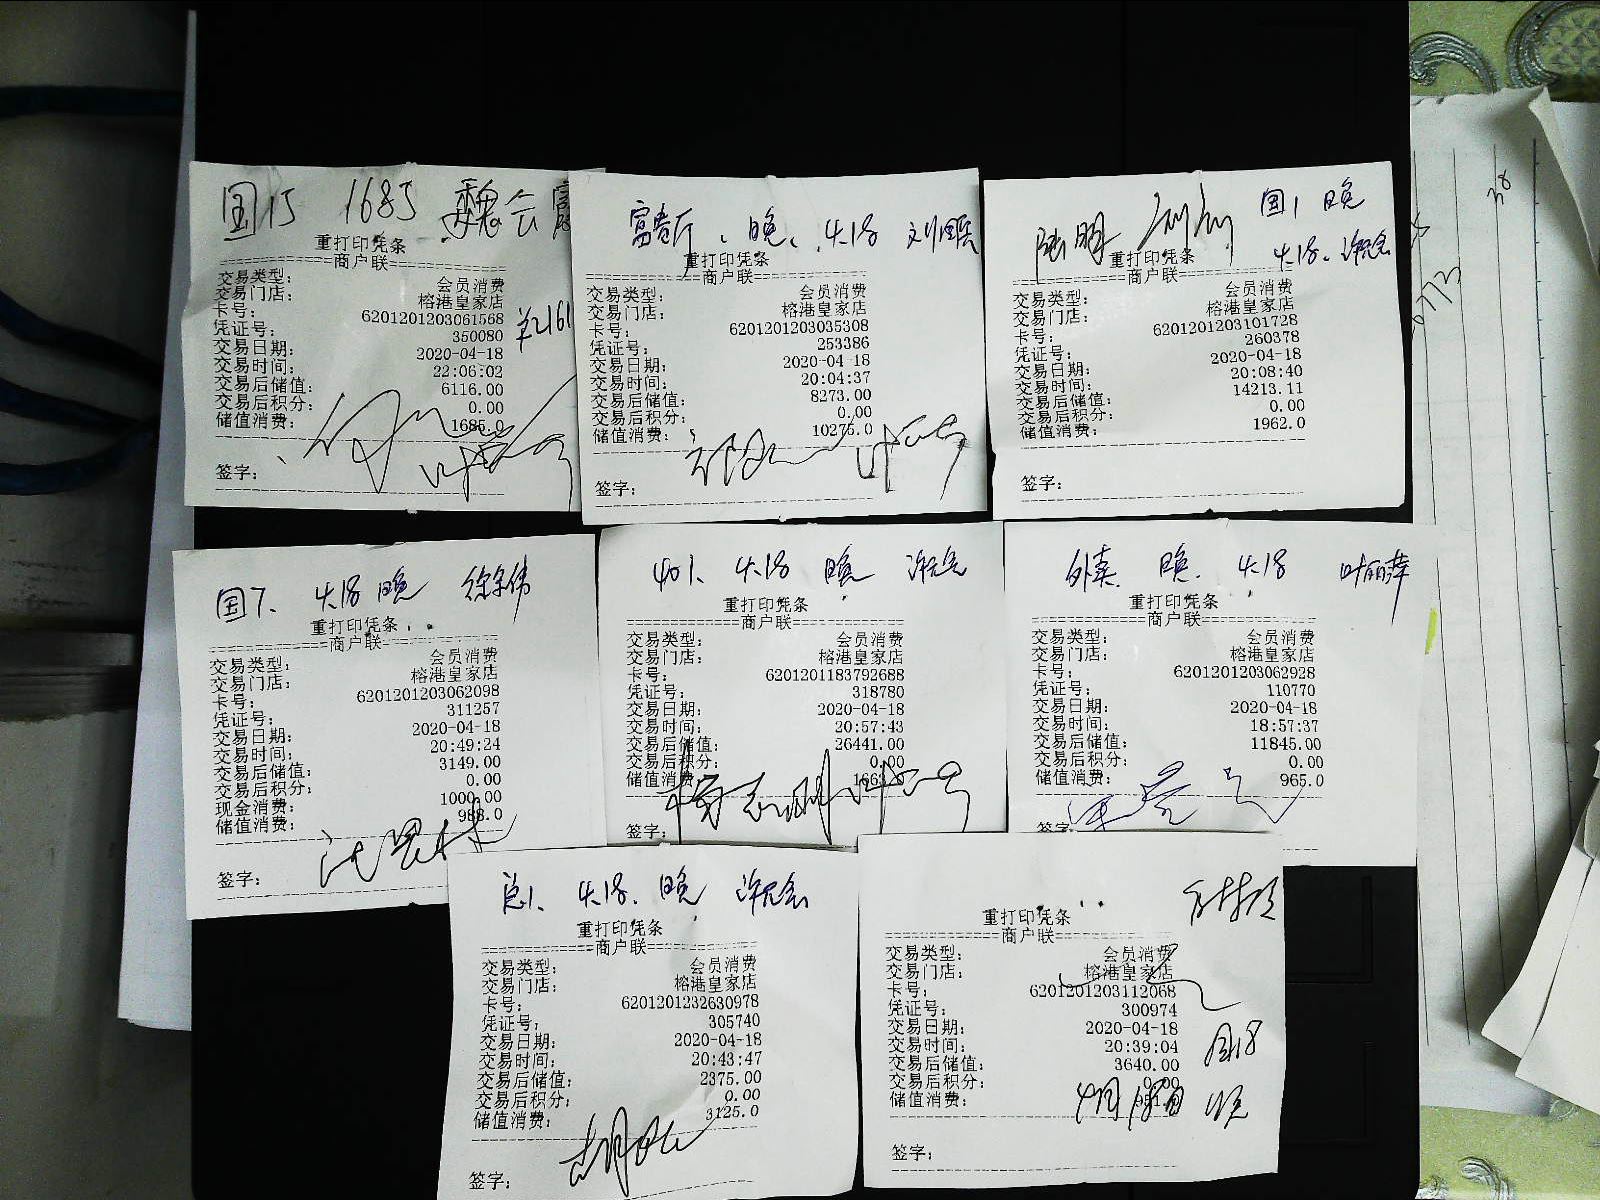 国15 1685 魏会
重打印凭条
商户联
交易类型: 会员消费
交易门店: 榕港皇家店
卡号: 6201201203061568
凭证号: 350080
交易日期: 2020-04-18
交易时间: 22:06:02
交易后储值: 6116.00
交易后积分: 0.00
储值消费: 1685.0
签字:
富贵厅、晚、4.18
重打印凭条
商户联
交易类型: 会员消费
交易门店: 榕港皇家店
卡号: 6201201203035308
凭证号: 253386
交易日期: 2020-04-18
交易时间: 20:04:37
交易后储值: 8273.00
交易后积分: 0.00
储值消费: 10275.0
签字:
国1 晚
4.18、
重打印凭条
商户联
交易类型: 会员消费
交易门店: 榕港皇家店
卡号: 6201201203101728
凭证号: 260378
交易日期: 2020-04-18
交易时间: 20:08:40
交易后储值: 14213.11
交易后积分: 0.00
储值消费: 1962.0
签字:
国7、4.18 晚
重打印凭条
商户联
交易类型: 会员消费
交易门店: 榕港皇家店
卡号: 6201201203062098
凭证号: 311257
交易日期: 2020-04-18
交易时间: 20:49:24
交易后储值: 3149.00
交易后积分: 0.00
现金消费: 1000.00
储值消费: 988.0
签字:
401、4.18 晚
重打印凭条
商户联
交易类型: 会员消费
交易门店: 榕港皇家店
卡号: 6201201183792688
凭证号: 318780
交易日期: 2020-04-18
交易时间: 20:57:43
交易后储值: 26441.00
交易后积分: 0.00
储值消费:
签字:
外卖 晚、4.18 叶丽萍
重打印凭条
商户联
交易类型: 会员消费
交易门店: 榕港皇家店
卡号: 6201201203062928
凭证号: 110770
交易日期: 2020-04-18
交易时间: 18:57:37
交易后储值: 11845.00
交易后积分: 0.00
储值消费: 965.0
签字:
总1、4.18、晚
重打印凭条
商户联
交易类型: 会员消费
交易门店: 榕港皇家店
卡号: 6201201232630978
凭证号: 305740
交易日期: 2020-04-18
交易时间: 20:43:47
交易后储值: 2375.00
交易后积分: 0.00
储值消费: 3125.0
签字:
重打印凭条
商户联
交易类型: 会员消费
交易门店: 榕港皇家店
卡号: 6201201203112068
凭证号: 300974
交易日期: 2020-04-18
交易时间: 20:39:04
国18
交易后储值: 3640.00
交易后积分: 0.00
储值消费:
4月18日 晚
签字: